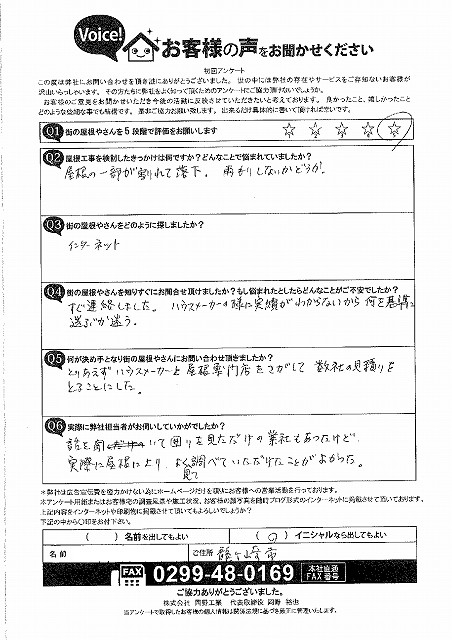 Voice!
お客様の声をお聞かせください
初回アンケート
この度は弊社にお問い合わせを頂き誠にありがとうございました。世の中には弊社の存在やサービスをご存知ないお客様が
沢山いらっしゃいます。その方たちに弊社をよく知って頂くためのアンケートにご協力頂けないでしょうか。
お客様のご意見をお聞かせいただき今後の活動に反映させていただきたいと考えております。良かったこと、嬉しかったこと
どのような些細な事でも結構です。是非ご協力お願い致します。出来るだけ具体的に書いて頂ければ幸いです。
Q1 街の屋根やさんを5段階で評価をお願いします ☆ ☆ ☆ ☆ ☆
Q2 屋根工事を検討したきっかけは何ですか?どんなことで悩まれていましたか?
屋根の一部が割れて落下。雨もりしないかどうか。
Q3 街の屋根やさんをどのように探しましたか?
インターネット
Q4 街の屋根やさんを知りすぐにお問合せ頂けましたか?もし悩まれたとしたらどんなことがご不安でしたか?
すぐ連絡しました。ハウスメーカーの様に実績がわからないから何を基準に
選ぶか迷う。
Q5 何が決め手となり街の屋根やさんにお問い合わせ頂きましたか?
とりあえずハウスメーカーと屋根専門店をさがして数社の見積りを
とることにした。
Q6 実際に弊社担当者がお伺いしていかがでしたか?
話を聞いて回りを見ただけの業社もあったけど、
実際に屋根に上り、よく調べていただけたことがよかった。
見て
*弊社は広告宣伝費を極力かけない為にホームページだけを頼りにお客様への営業活動を行っております。
本アンケート用紙またはお客様宅の調査風景や施工状況、お客様の顔写真を随時ブログ形式のインターネットに掲載させて頂いております。
上記内容をインターネットや印刷物に掲載させて頂いてもよろしいでしょうか?
下記の中から〇印をお付下さい。
( )名前を出してもよい ( 〇 )イニシャルなら出してもよい
名前 ご住所 龍ヶ崎市
FAX 0299-48-0169 本社直通 FAX番号
ご協力ありがとうございました。
株式会社 岡野工業 代表取締役 岡野 裕也
当アンケートで取得したお客様の個人情報は関係法規に基づき厳正に管理いたします。